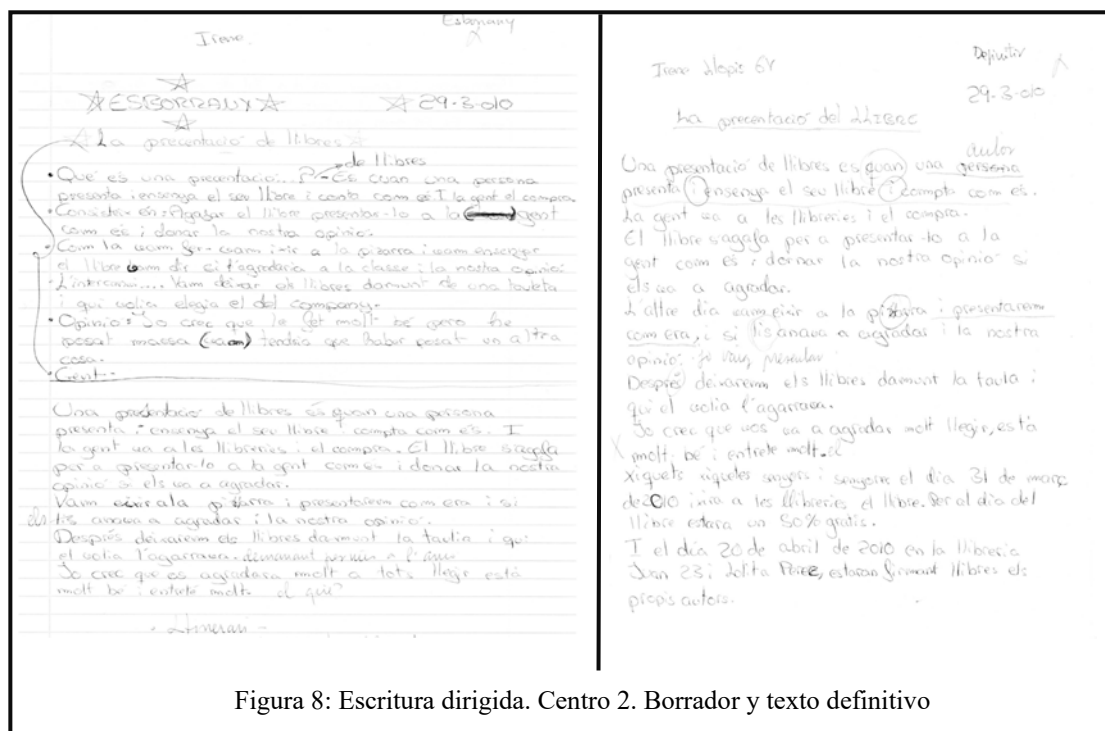 Irene
Esborrany
ESBORRANY 29-3-010
La precentació de llibres
de llibres
• Que és una precentació:..? - És cuan una persona
presenta i ensenya el seu llibre i conta com és I la gent el compra.
• Consistix en: Agafar el llibre presentar-lo a la gent
com és i donar la nostra opinió.
• Com la vam fer- vam ixir a la pizarra i vam ensenyar
el llibre vam dir si t'agradaria a la classe i la nostra opinió.
• L'intercanvi.... Vam deixar els llibres damunt de una tauleta
i qui volia elegia el del company.
• Opinió: Jo crec que le fet molt bé pero he
posat massa (vam) tendria que habur posat un altra
cosa.
• Gent-
Una presentació de llibres és quan una persona
presenta i ensenya el seu llibre i compta com és. I
la gent va a les llibreries i el compra. El llibre s'agafa
per a presentar-lo a la gent com és i donar la nostra
opinió si els va a agradar.
Vam eixir a la pizarra i presentarem com era i si
els lis anava a agradar i la nostra opinió.
Després deixarem els llibres damunt la taula i qui
el volia l'agarrava.
Jo crec que os agradara molt a tots llegir està
molt bé i entreté molt. el qui?
Definitiu
Irene Llopis 6V
29-3-010
La precentació del LLIBRE
autor
Una presentació de llibres es quan una persona
presenta i ensenya el seu llibre i compta com és.
La gent va a les llibreries i el compra.
El llibre s'agafa per a presentar-lo a la
gent com és i dornar la nostra opinió si
els va a agradar.
L'altre dia vam eixir a la pizarra i presentarem
com era, i si lis anava a agradar i la nostra
opinió.
Després deixarem els llibres damunt la taula i
qui el volia l'agarrava.
Jo crec que vos va a agradar molt llegir, està
molt bé i entreté molt.
Xiquets xiquetes senyors i senyores el dia 31 de març
de 2010 ixira a les llibreries el llibre. Per al dia del
llibre estara un 50% gratis.
I el dia 20 de abril de 2010 en la llibreria
Juan 23 i Lolita Peree, estaran firmant llibres els
propis autors.
Figura 8: Escritura dirigida. Centro 2. Borrador y texto definitivo